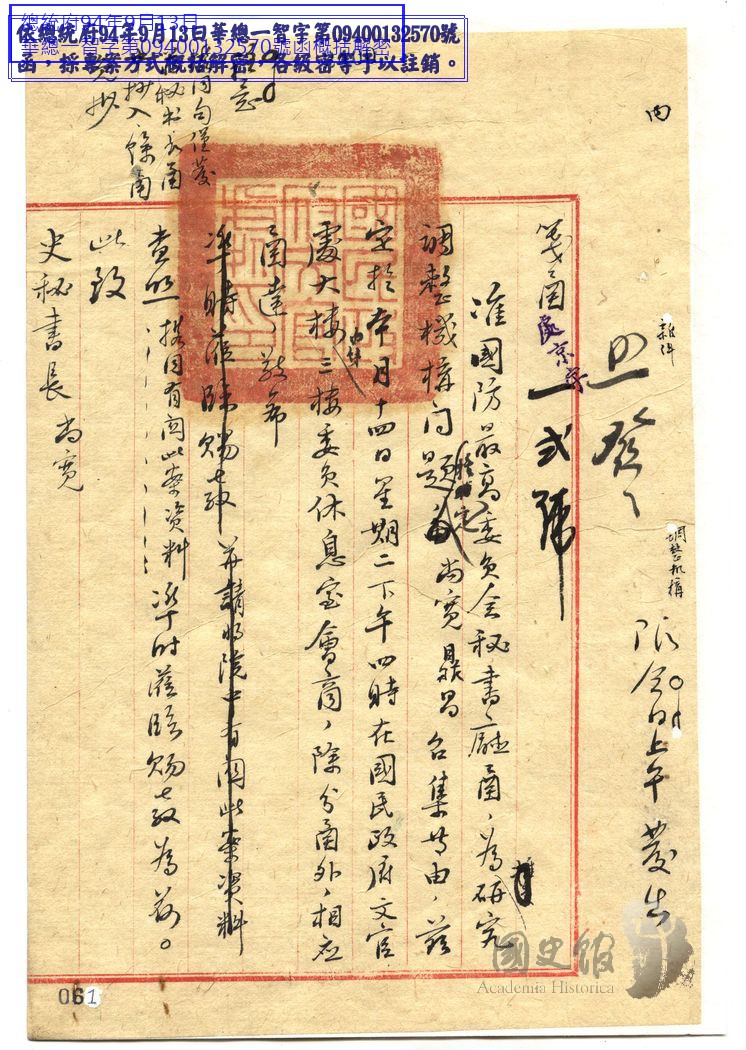 總統府94年9月13日
華總一智字第09400132570號函概括解密
依總統府94年9月13日華總一智字第09400132570號
函，採專案方式概括解密，各級審等予以註銷。
雜件
調整机構
限今日上午發出
箋函 處京字
一式號
准國防最高委員會秘書廳函，為研究
調整機構問題 尚寬 鼎昌召集等由，茲
定於本月十四日星期二下午四時在國民政府文官
處大樓三樓委員休息室會商，除分函外，相應
函達，敬希
準時蒞臨賜教 并請將院中有關此案資料
查照
携同有関此案資料 準时蒞臨賜教為荷。
此致
史秘書長尚寬
061
國史館
Academia Historica